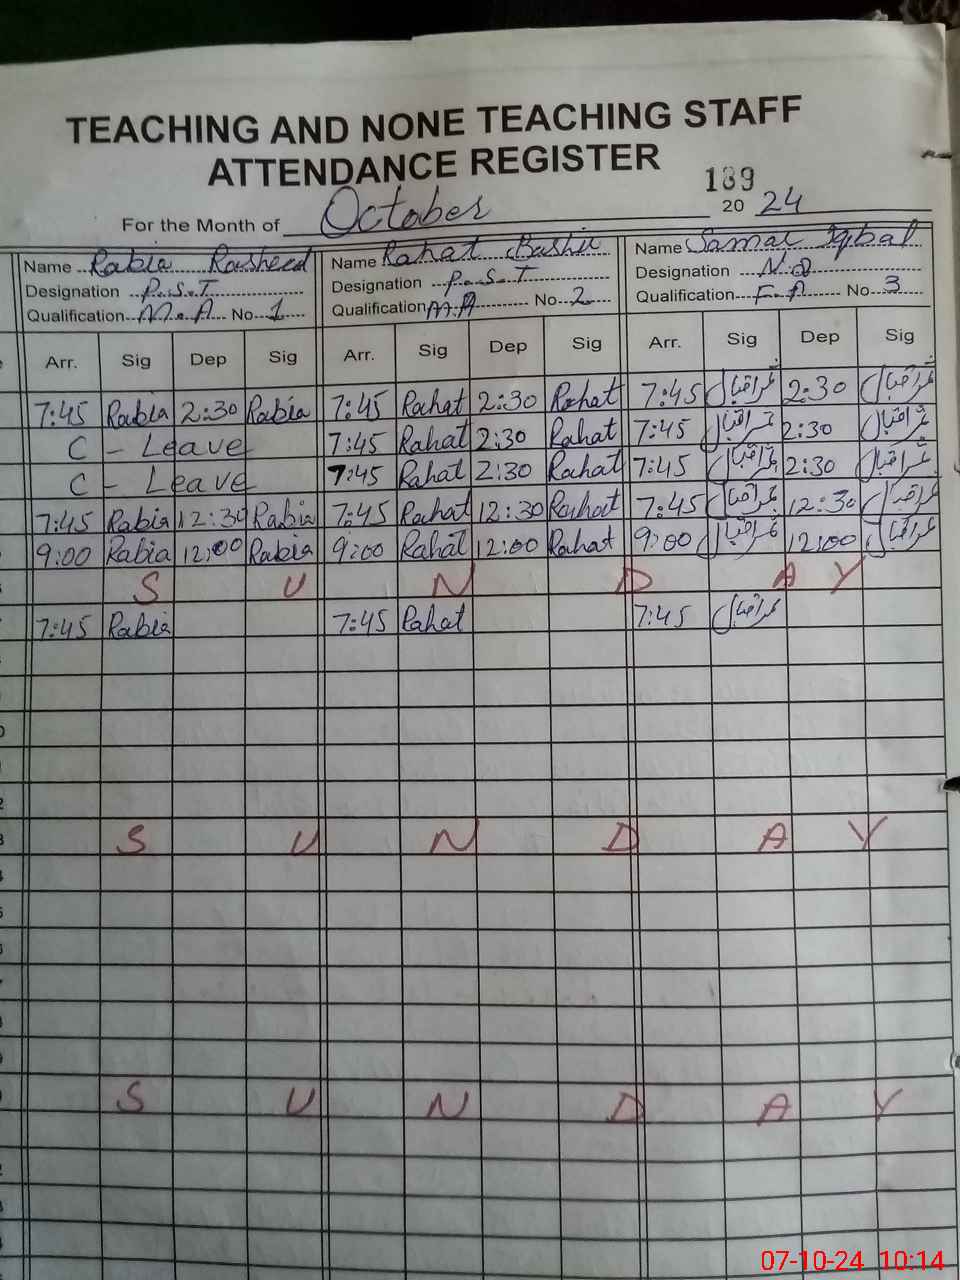 TEACHING AND NONE TEACHING STAFF
ATTENDANCE REGISTER
139
For the Month of October 20 24
Name Rabia Rasheed Name Rahat Bashir Name Samar Iqbal
Designation P.S.T Designation P.S.T Designation N.Q
Qualification M.A No. 1 Qualification M.A No. 2 Qualification F.A No. 3
Arr. Sig Dep Sig Arr. Sig Dep Sig Arr. Sig Dep Sig
7:45 Rabia 2:30 Rabia 7:45 Rahat 2:30 Rahat 7:45 2:30
C - Leave 7:45 Rahat 2:30 Rahat 7:45 2:30
C - Leave 7:45 Rahat 2:30 Rahat 7:45 2:30
7:45 Rabia 12:30 Rabia 7:45 Rahat 12:30 Rahat 7:45 12:30
9:00 Rabia 12:00 Rabia 9:00 Rahat 12:00 Rahat 9:00 12:00
S U N D A Y
7:45 Rabia 7:45 Rahat 7:45
S U N D A Y
S U N D A Y
07-10-24 10:14